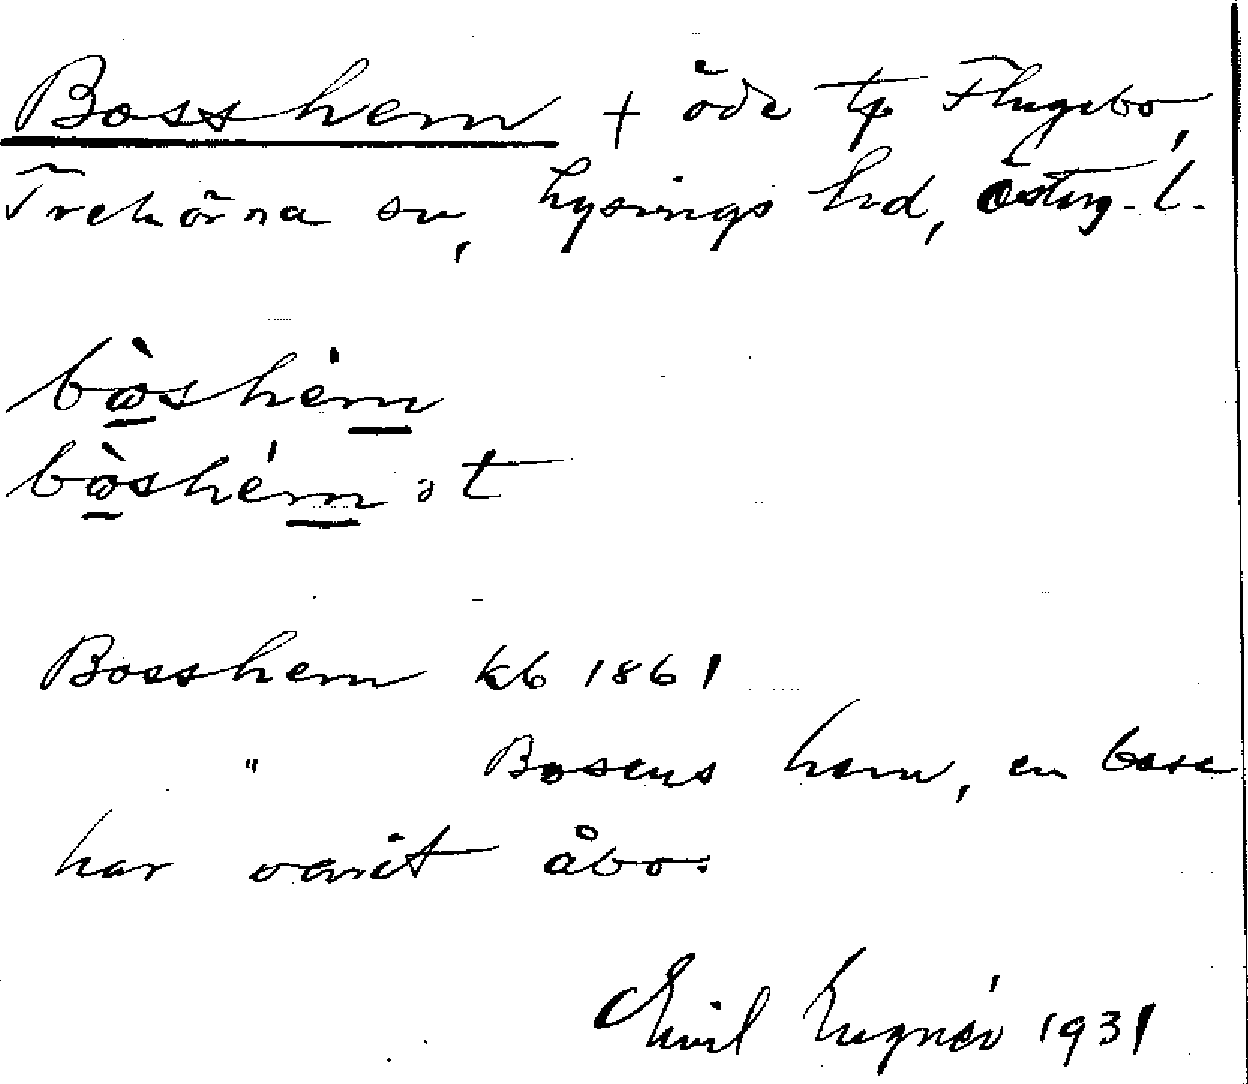 Bosshem + öde tp Flugebo,
Trehörna sn, Lysings hd, Österg. l.
bòshém
bòshém ət
Bosshem kb 1861
" Bosens hem, en bose
har varit åbo.
Emil 1931